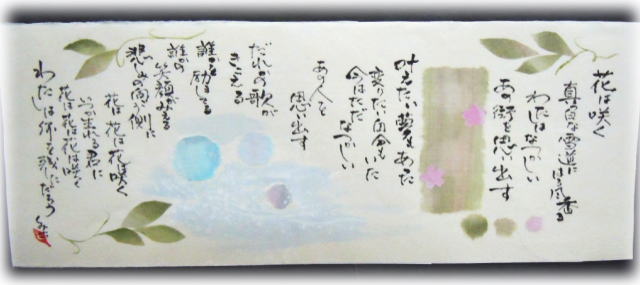 花は咲く
真白な雪道に春風香る
わたしはなつかしい
あの街を思い出す
叶えたい夢もあった
変りたい自分もいた
今はただなつかしい
あの人を
思い出す
だれかの歌が
きこえる
誰かを励ましてる
誰かの笑顔がみえる
悲しみの向う側に
花は花は花は咲く
いつか生れる君に
花は花は花は咲く
わたしは何を残しただろう